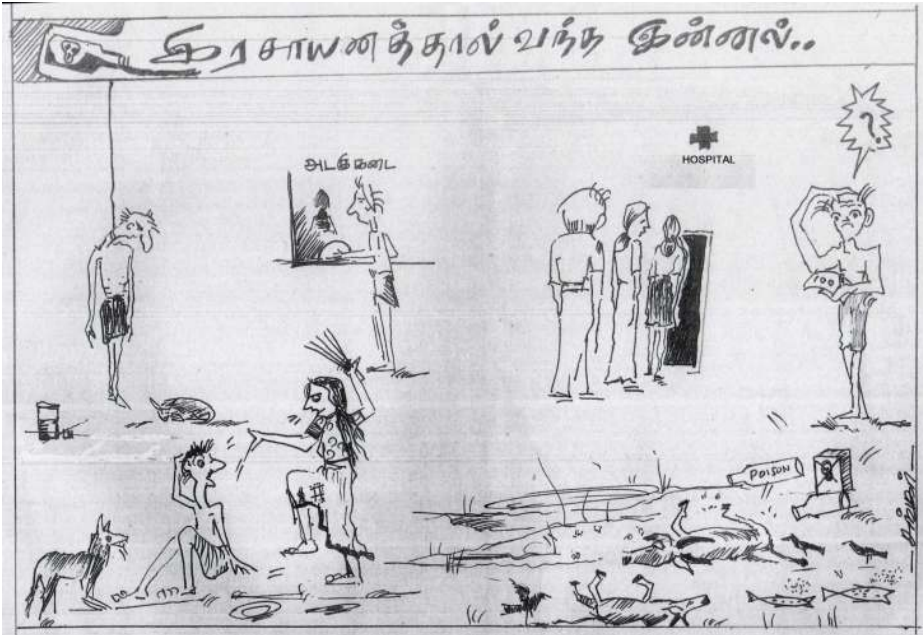 இரசாயனத்தால் வந்த இன்னல்..
அடகுகடை
HOSPITAL
?
POISON